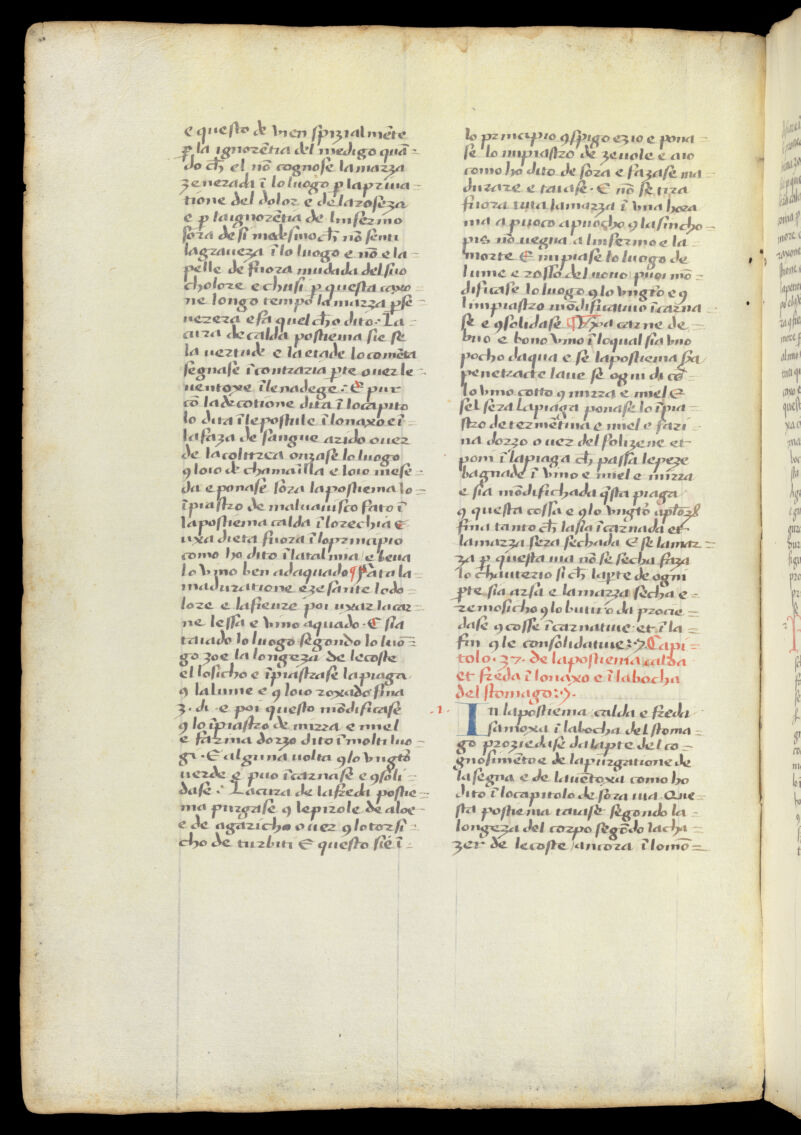 e questo de vien spizialmēte
ꝑ la ignorētia del medigo quā=
do cħ el nō cognose lamarza
zenerada ī lo luogo ꝑ la priua=
tione del dolor e de la roseza
e ꝑ la ignorētia de linfermo
sora de si medesimo cħ nō senti
la graueza ī lo luogo e nō e la=
pelle de fuora mudada del suo
cholore e chusi ꝑ questa caxo=
ne longo tempo la marza ꝑse=
uezera e fa quel cħ o dito: La
cura de calda postiema sie se
la vertude e la etade lo comēta
segnase ī contrazia ꝑte o uer le
uentoxe ī le nadege: E pur
cō la decotione dita ī lo capito
lo dita ī le postule ī lo naxo e ī
la faza de sangue azido o uer
de la coltrea onzase lo luogo
ꝯ loio de chamailla e loio mese=
da e ponase sora la postiema lo
īpiastro de maluauisco fato ī
la postiema calda ī lo rechia E
uxa dieta fuora ī lo principio
como ho dito ī la talmia e beua
lo vino ben adaquado ¶ Fata la=
maduratione e zesante lo do=
lore e la fieure poi uxar la car=
ne lessa e vino aquado. E sia
taiado lo luogo segondo lo luō=
go zoe la longeza de le coste
el losicho e īpiastrase la piaga
ꝯ la lume e ꝯ loio roxado fina
3. di. e poi questo mōdificase
ꝯ lo īpiastro de mirra e miel
e farina dorzo dito ī molti luo=
gi. E alguna uolta ꝯ lo vngto
uerde e puo īcarnase e ꝯsoli=
dase: La cura de la freda postie=
ma purgase ꝯ le pirole de aloe=
e de agaricho o uer ꝯ lo torsi=
cho de turbiti E questo sie ī=
lo principio ꝯ spigo e zio e pona=
se lo inpiastro de zeuole e aio
como ho dito de sora e fazase ma=
durare e taiase. E nō se tira
fuora tuta la marza ī vna hora
ma a puoco a puocho ꝯ la sincho=
pis nō uegna a linfermo e la=
morte. E inpiase lo luogo de
lume e rosso del uouo puoi mō=
dificase lo luogo ꝯ lo vngto e ꝯ
linpiastro mōdificatiuo īcarna=
se e ꝯsolidase ¶ Uxa carne de=
bito e bono vino ī loqual sia vno
pocho daqua e se la postiema sia
penetrate laue se ogni di cō=
lo vino cotto ꝯ mirra e miel E
sel sera la piaga ponase lo īpia=
stro de termētina e miel e fari=
na dorzo o uer del folizene et
poni ī la piaga cħ passa le peze
bagnade ī vino e miel e mirra
e sia mōdifichada qsta piaga
ꝯ questa cossa e ꝯ lo vngto
fina tanto cħ la sia īcarnada et
la marza sera sechada E se la mar=
za ꝑ questa uia nō se secha faza
lo chauterio si cħ la ꝑte de ogni
ꝑte sia arsa e la marza secha e=
remosicho ꝯ lo butiro da procie=
dase ꝯ cosse īcarnatiue et ī la=
fin ꝯ le consolidatiue: Capi=
tolo. 37. de la postiema calda
et freda ī lo naxo e ī la bocha
del stomago:
.1.
In la postiema calda e freda
famoxa ī la bocha del stoma=
go proziedase da la ꝑte del co=
gnosimēto e de la purgatione de
la segna e de la uētoxa como ho
dito ī lo capitolo de sora uia Que=
sta postiema taiase segondo la=
longeza del corpo segōdo lacha=
zer de le coste ancora ī lo mō=